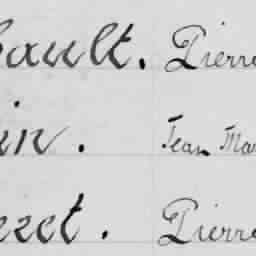 bault. Pierre
in. Jean Mar
zet. Pierre